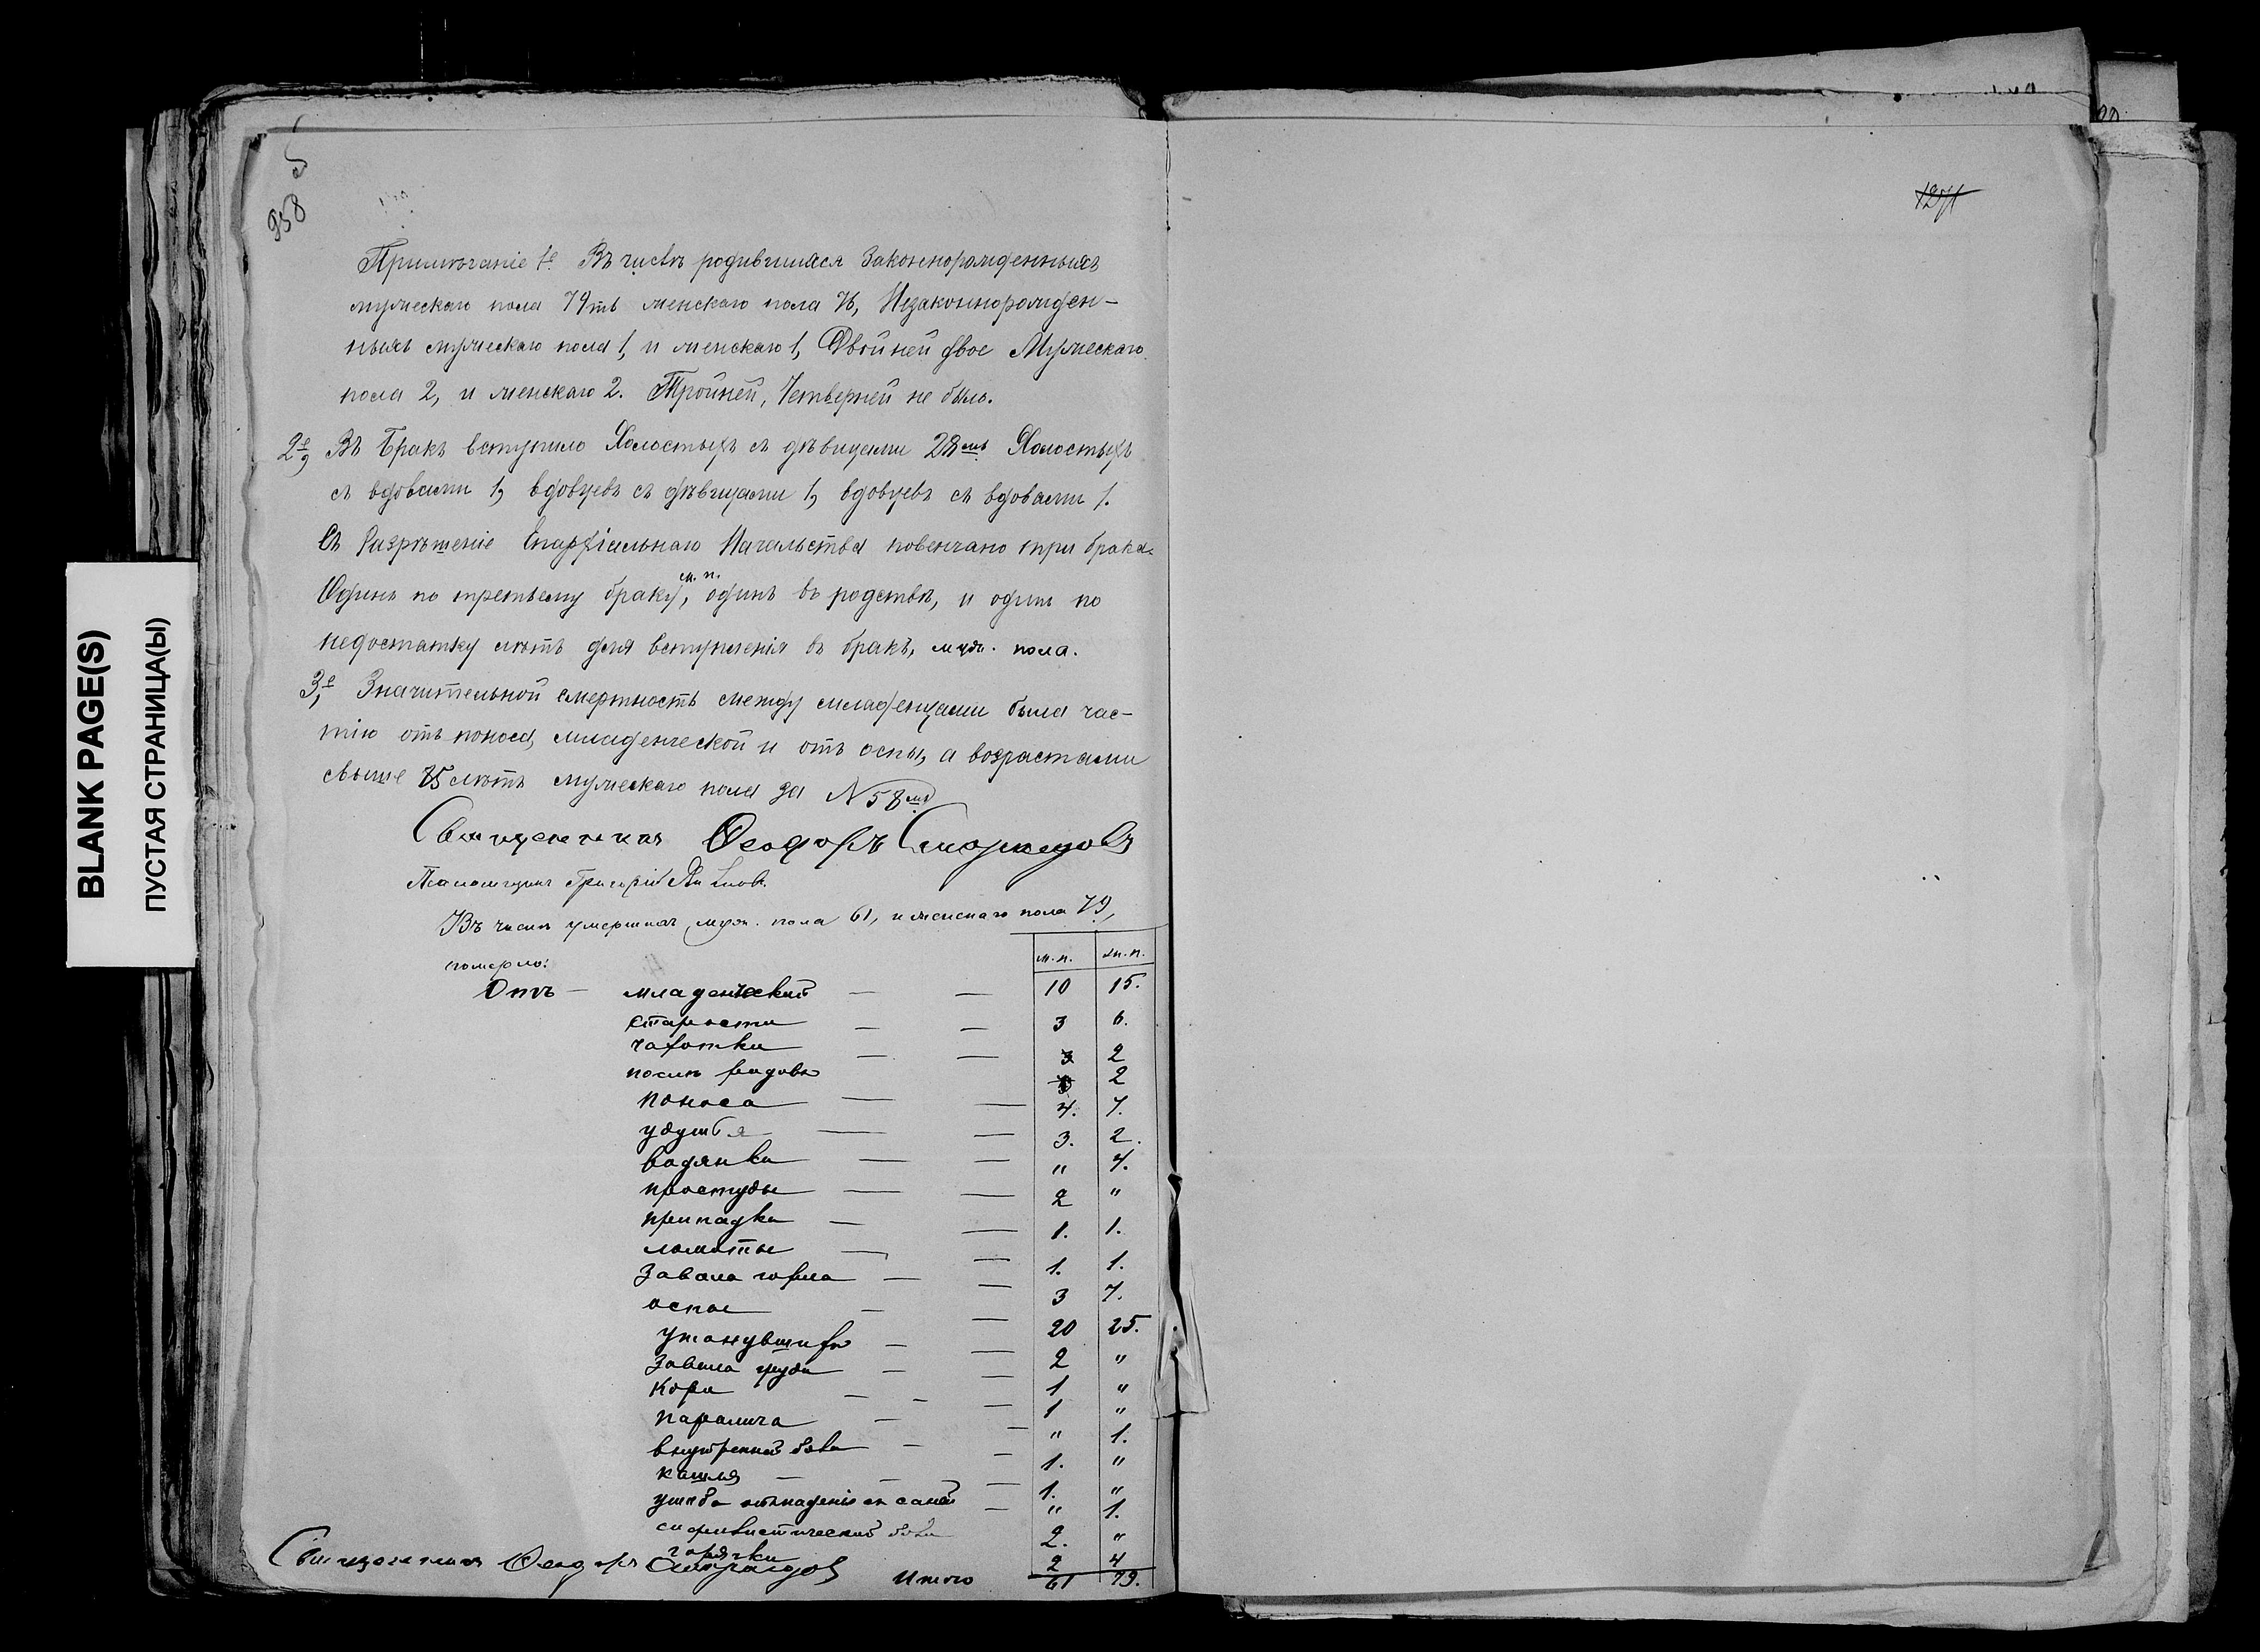 358
1271
Примѣчаніе 1е. Въ числѣ родившихся Законнорожденныхъ
мужескаго пола 79ть женскаго пола 76, Незаконнорожден-
ныхъ мужескаго пола 1, и женскаго 1, Двойней двое Мужескаго
пола 2, и женскаго 2. Тройней, Четверней не было.
2е, Въ Бракъ вступило Холостыхъ съ дѣвицами 28мь Холостыхъ
съ вдовами 1, вдовцевъ съ дѣвицами 1, вдовцевъ съ вдовами 1.
Съ Разрѣшеніе Епархіальнаго Начальства повенчано три брака.
Одинъ по третьему браку, м. п. одинъ въ родствѣ, и одинъ по
недостатку лѣтъ для вступленія въ бракъ, муж. пола.
3,е Значительной смертность между младенцами была час-
тію отъ поноса, младенческой и отъ оспы, а возрастами
свыше 75 лѣтъ мужескаго пола за N 58мъ
Священникъ Ѳеодоръ
Псаломщикъ Григорій
Въ числѣ умершихъ муж. пола 61, и женскаго пола 79,
померло: м.п. ж.п.
Отъ — младенческой — — 10 15.
старости — — 3 6.
чахотки — — 3 2
послѣ родовъ 2
поноса — — 4. 7.
удушья — — 3. 2.
водянки — — " 4.
простуды — — 2 "
припадки — — 1. 1.
ломоты — — 1. 1.
Завала горла — — 3 7.
оспы — — 20 25.
утонувшихъ — — 2 "
Завала груди — — 1 "
Кори — - — 1 "
паралича — — " 1.
внутренней боли — — 1. "
кашля — — — 1. "
ушиба отъ паденія съ саней — " 1.
сифилистической боли 2. "
горячки 2 4
Священникъ Ѳеодоръ Итого 61 79.
BLANK PAGE(S)
ПУСТАЯ СТРАНИЦА(Ы)